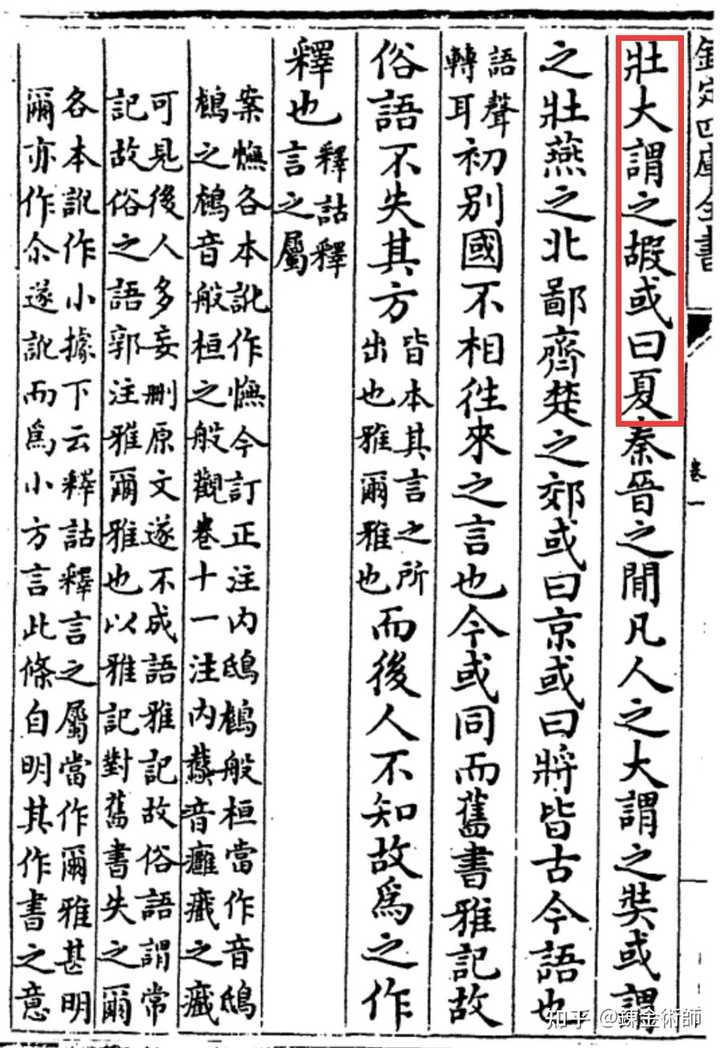 欽定四庫全書
卷一
壯大謂之嘏或曰夏秦晉之閒凡人之大謂之奘或謂
之壯燕之北鄙齊楚之郊或曰京或曰將皆古今語也
語聲
轉耳
初別國不相往來之言也今或同而舊書雅記故
俗語不失其方
皆本其言之所
出也雅爾雅也
而後人不知故為之作
釋也
釋詁釋
言之屬
案幠各本訛作憮今訂正注内鴟鵂般桓當作音鴟
鵂之鵂音般桓之般觀卷十一注内音癰之
可見後人多妄刪原文遂不成語雅記故俗語謂常
記故俗之語郭注雅爾雅也以雅記對舊書失之爾
各本訛作小據下云釋詁釋言之屬當作爾雅甚明
爾亦作尒遂訛而為小方言此條自明其作書之意
知乎 @鍊金術師